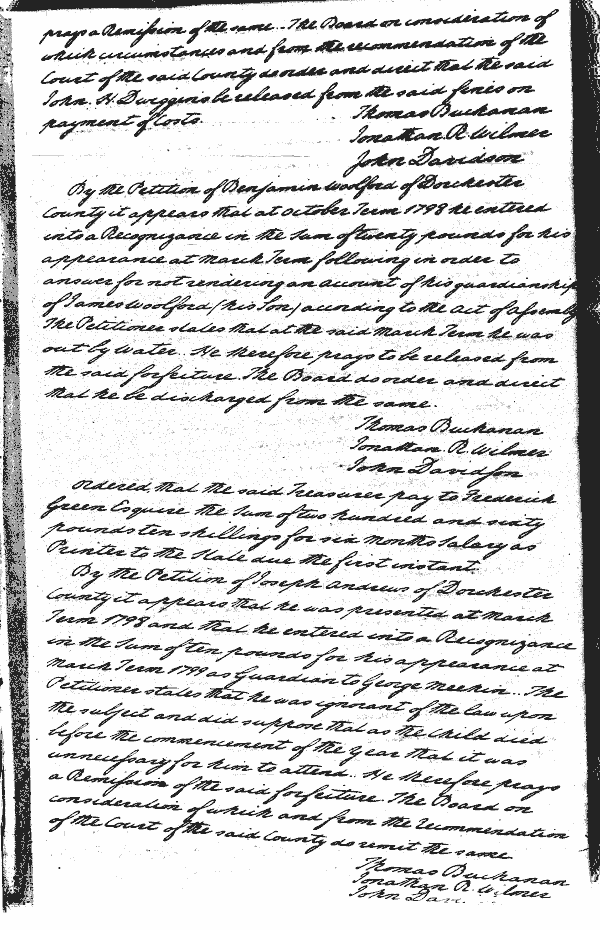 prays a Remission of the same.. The Board on consideration of
which circumstances and from the recommendation of the
Court of the said County do order and direct that the said
John. H. Dwiggins be released from the said fines on
payment of Costs.
Thomas Buchanan
Jonathan R. Wilmer
John Davidson
By the Petition of Benjamin Woolford of Dorchester
County it appears that at October Term 1798 he entered
into a Recognizance in the sum of twenty pounds for his
appearance at March Term following in order to
answer for not rendering an account of his guardianship
of James Woolford (his Son) according to the act of assembly
The Petitioner states that at the said March Term he was
out by water.. He therefore prays to be released from
the said forfeiture. The Board do order and direct
that he be discharged from the same.
Thomas Buchanan
Jonathan. R. Wilmer
John Davidson
Ordered, that the said Treasurer pay to Frederick
Green Esquire the Sum of two hundred and sixty
pounds ten shillings for six months salary as
Printer to the State due the first instant.
By the Petition of Joseph Andrews of Dorchester
County it appears that he was presented at March
Term 1798 and that he entered into a Recognizance
in the Sum of ten pounds for his appearance at
March Term 1799 as Guardian to George Meekin... The
Petitioner states that he was ignorant of the law upon
the subject and did suppose that as the Child died
before the commencement of the year that it was
unnecessary for him to attend.. He therefore prays
a Remission of the said forfeiture. The Board on
consideration of which and from the recommendation
of the Court of the said County do remit the same
Thomas Buchanan
Jonathan R. Wilmer
John Dav